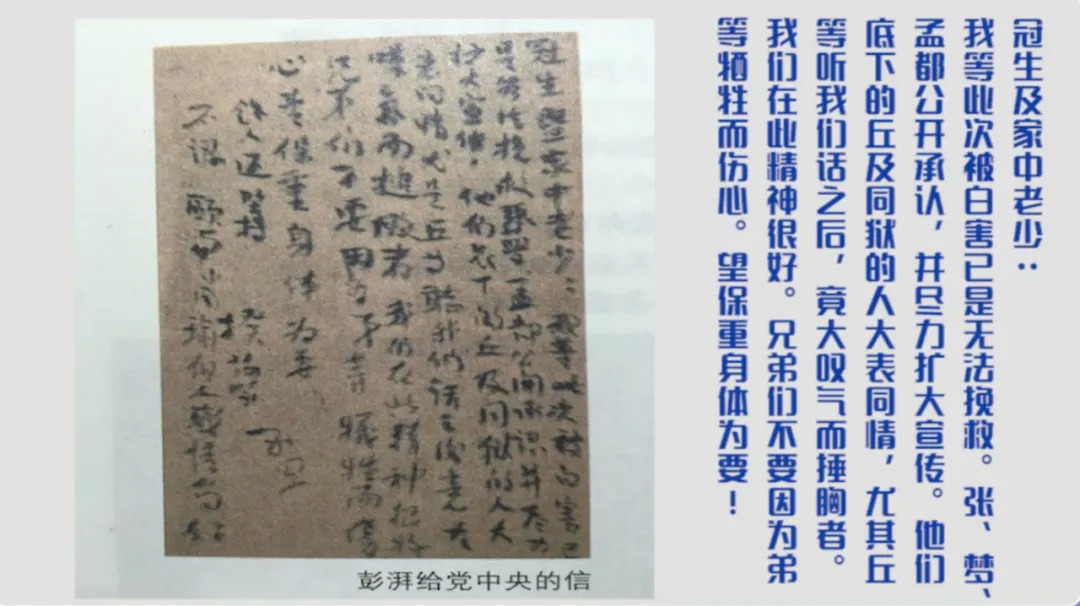 冠生及家中老少：
我等此次被白害已是无法挽救。张、梦、
孟都公开承认，并尽力扩大宣传。他们
底下的丘及同狱的人大表同情，尤其丘
等听我们话之后，竟大叹气而捶胸者。
我们在此精神很好。兄弟们不要因为弟
等牺牲而伤心。望保重身体为要！
冠生暨家中老少：我等此次被白害已
是无法挽救 孟都公開承認并尽力
扩大宣傳，他们底下的丘及同獄的人大
表同情尤是丘 聽我们話之後竟大
嘆氣而搥胸者 我们在此精神很好
兄弟们不要因 弟等犧牲而傷
心 保重身体为要
感情尚好
彭湃给党中央的信